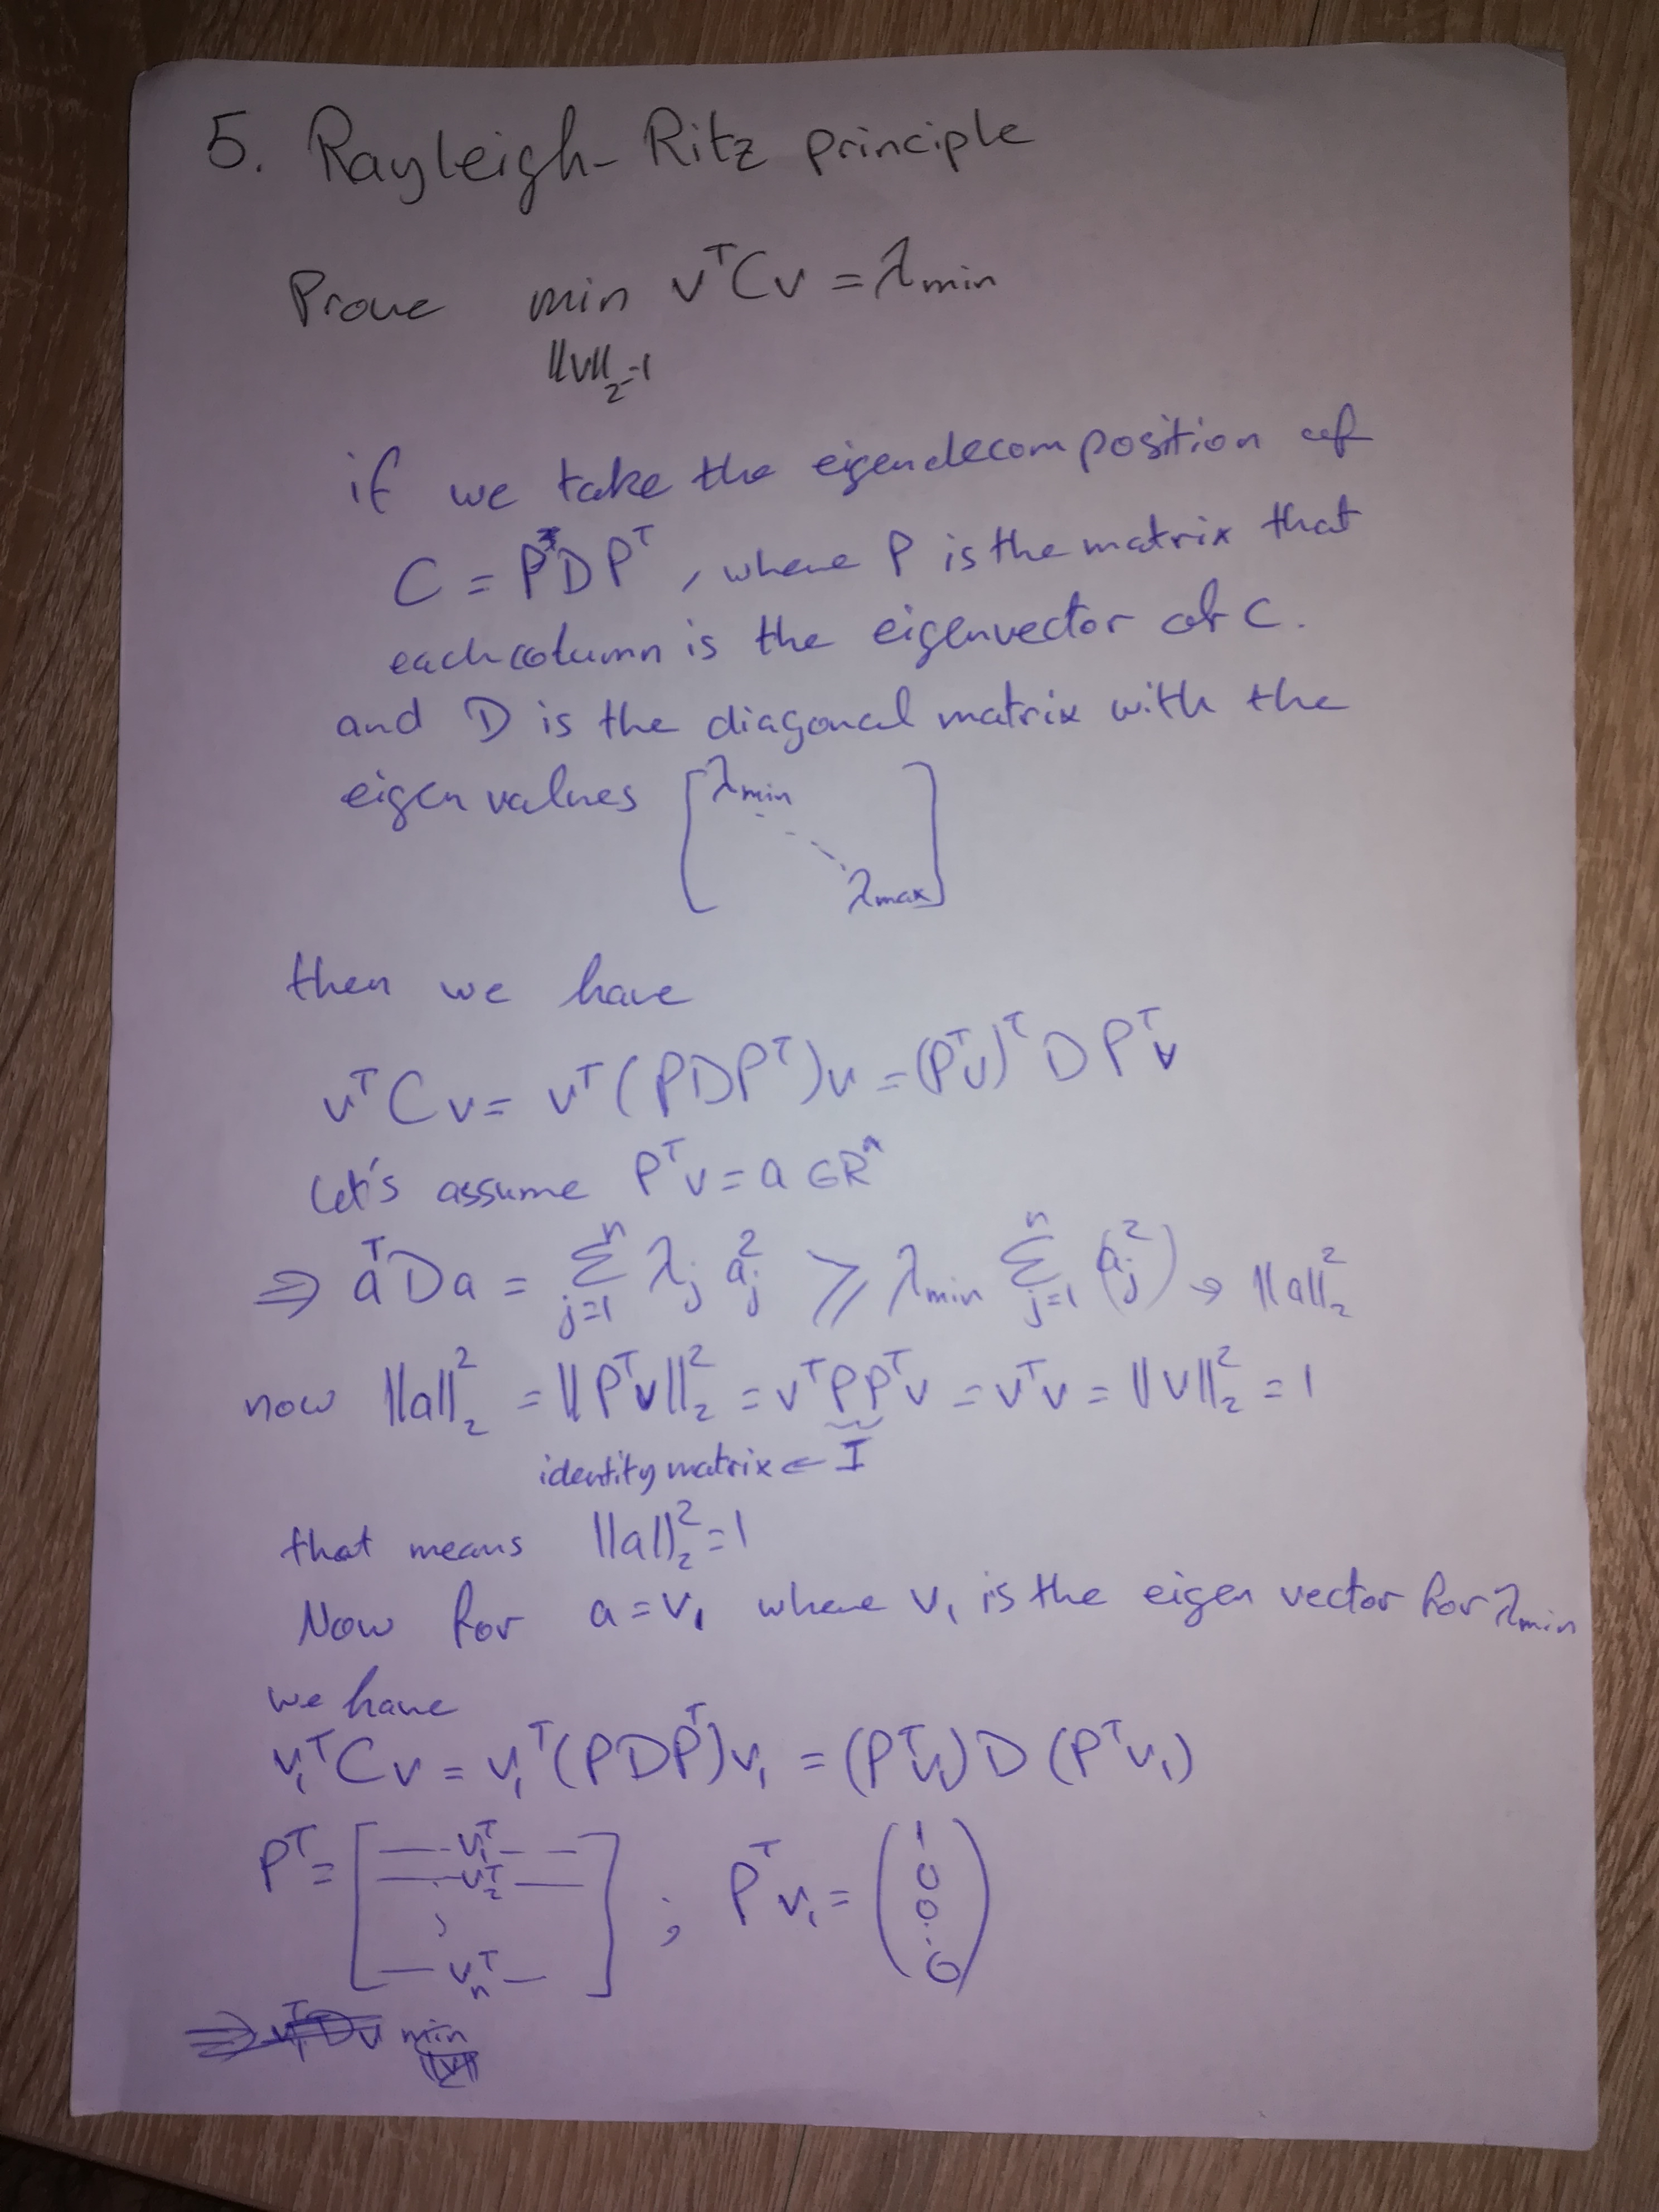 5. Rayleigh-Ritz principle
Prove min vᵀCv = λmin
||v||₂=1
if we take the eigendecomposition of
C = PDPᵀ, where P is the matrix that
each column is the eigenvector of C.
and D is the diagonal matrix with the
eigen values [λmin
λmax]
then we have
vᵀCv = vᵀ(PDPᵀ)v = (Pᵀv)ᵀDPᵀv
Let's assume Pᵀv = a ∈ Rⁿ
⇒ aᵀDa = Σⁿⱼ₌₁ λⱼ aⱼ² ⩾ λmin Σⁿⱼ₌₁ (aⱼ²) → ||a||₂²
now ||a||₂² = ||Pᵀv||₂² = vᵀPPᵀv = vᵀv = ||v||₂² = 1
identity matrix ← I
that means ||a||₂² = 1
Now for a = v₁ where v₁ is the eigen vector for λmin
we have
v₁ᵀCv = v₁ᵀ(PDPᵀ)v₁ = (Pᵀv₁)D(Pᵀv₁)
Pᵀ = [— v₁ᵀ — — v₂ᵀ — — vₙᵀ —] ; Pᵀv₁ = (1 0 0 : 0)
min